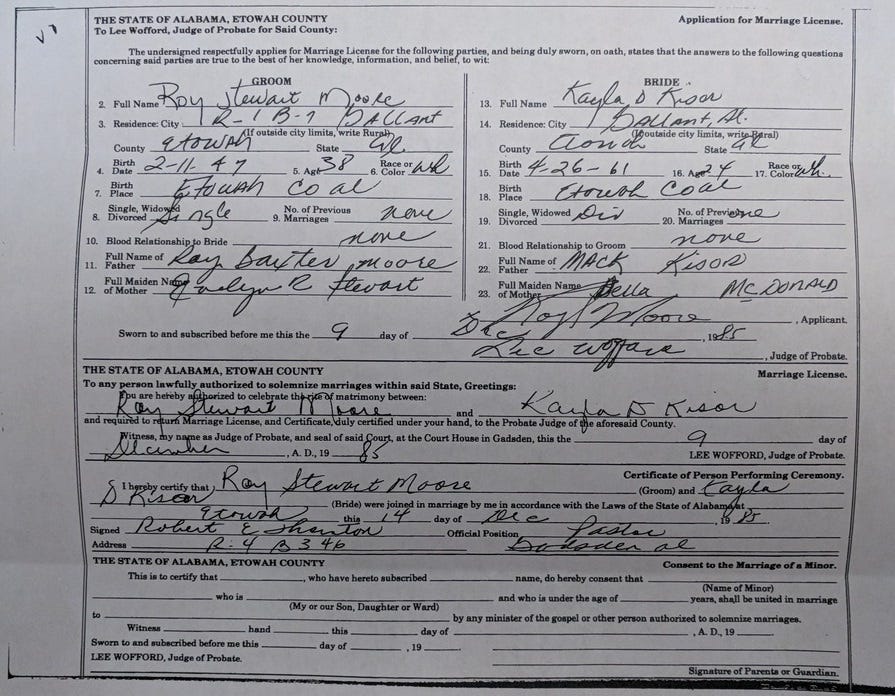 THE STATE OF ALABAMA, ETOWAH COUNTY Application for Marriage License.
To Lee Wofford, Judge of Probate for Said County:
The undersigned respectfully applies for Marriage License for the following parties, and being duly sworn, on oath, states that the answers to the following questions
concerning said parties are true to the best of her knowledge, information, and belief, to wit:
GROOM
2. Full Name Roy Stewart Moore
3. Residence: City R-1 B-7 Gallant
(If outside city limits, write Rural)
County Etowah State Al.
4. Birth Date 2-11-47 5. Age 38 6. Race or Color wh
7. Birth Place Etowah Co al
8. Single, Widowed Divorced Single 9. No. of Previous Marriages none
10. Blood Relationship to Bride none
11. Full Name of Father Roy Baxter Moore
12. Full Maiden Name of Mother Evelyn R Stewart
BRIDE
13. Full Name Kayla D Kisor
14. Residence: City Gallant, Al.
(If outside city limits, write Rural)
County State Al
15. Birth Date 4-26-61 16. Age 24 17. Race or Color wh.
18. Birth Place Etowah Co al
19. Single, Widowed Divorced Div 20. No. of Previous Marriages one
21. Blood Relationship to Groom none
22. Full Name of Father MACK Kisor
23. Full Maiden Name of Mother Della McDONALD
Roy S Moore , Applicant.
Sworn to and subscribed before me this the 9 day of Dec , 1985
Lee Wofford , Judge of Probate.
THE STATE OF ALABAMA, ETOWAH COUNTY Marriage License.
To any person lawfully authorized to solemnize marriages within said State, Greetings:
You are hereby authorized to celebrate the rite of matrimony between:
Roy Stewart Moore and Kayla D Kisor
and required to return Marriage License, and Certificate, duly certified under your hand, to the Probate Judge of the aforesaid County.
Witness, my name as Judge of Probate, and seal of said Court, at the Court House in Gadsden, this the 9 day of
December , A. D., 19 85 LEE WOFFORD, Judge of Probate.
Certificate of Person Performing Ceremony.
I hereby certify that Roy Stewart Moore (Groom) and Kayla
D Kisor (Bride) were joined in marriage by me in accordance with the Laws of the State of Alabama, at
Etowah this 14 day of Dec 1985
Signed Robert E Official Position Pastor
Address R-4 B 346 Gadsden al
THE STATE OF ALABAMA, ETOWAH COUNTY Consent to the Marriage of a Minor.
This is to certify that , who have hereto subscribed name, do hereby consent that
(Name of Minor)
who is and who is under the age of years, shall be united in marriage
(My or our Son, Daughter or Ward)
to by any minister of the gospel or other person authorized to solemnize marriages.
Witness hand this day of , A. D., 19
Sworn to and subscribed before me this day of , 19
LEE WOFFORD, Judge of Probate.
Signature of Parents or Guardian.